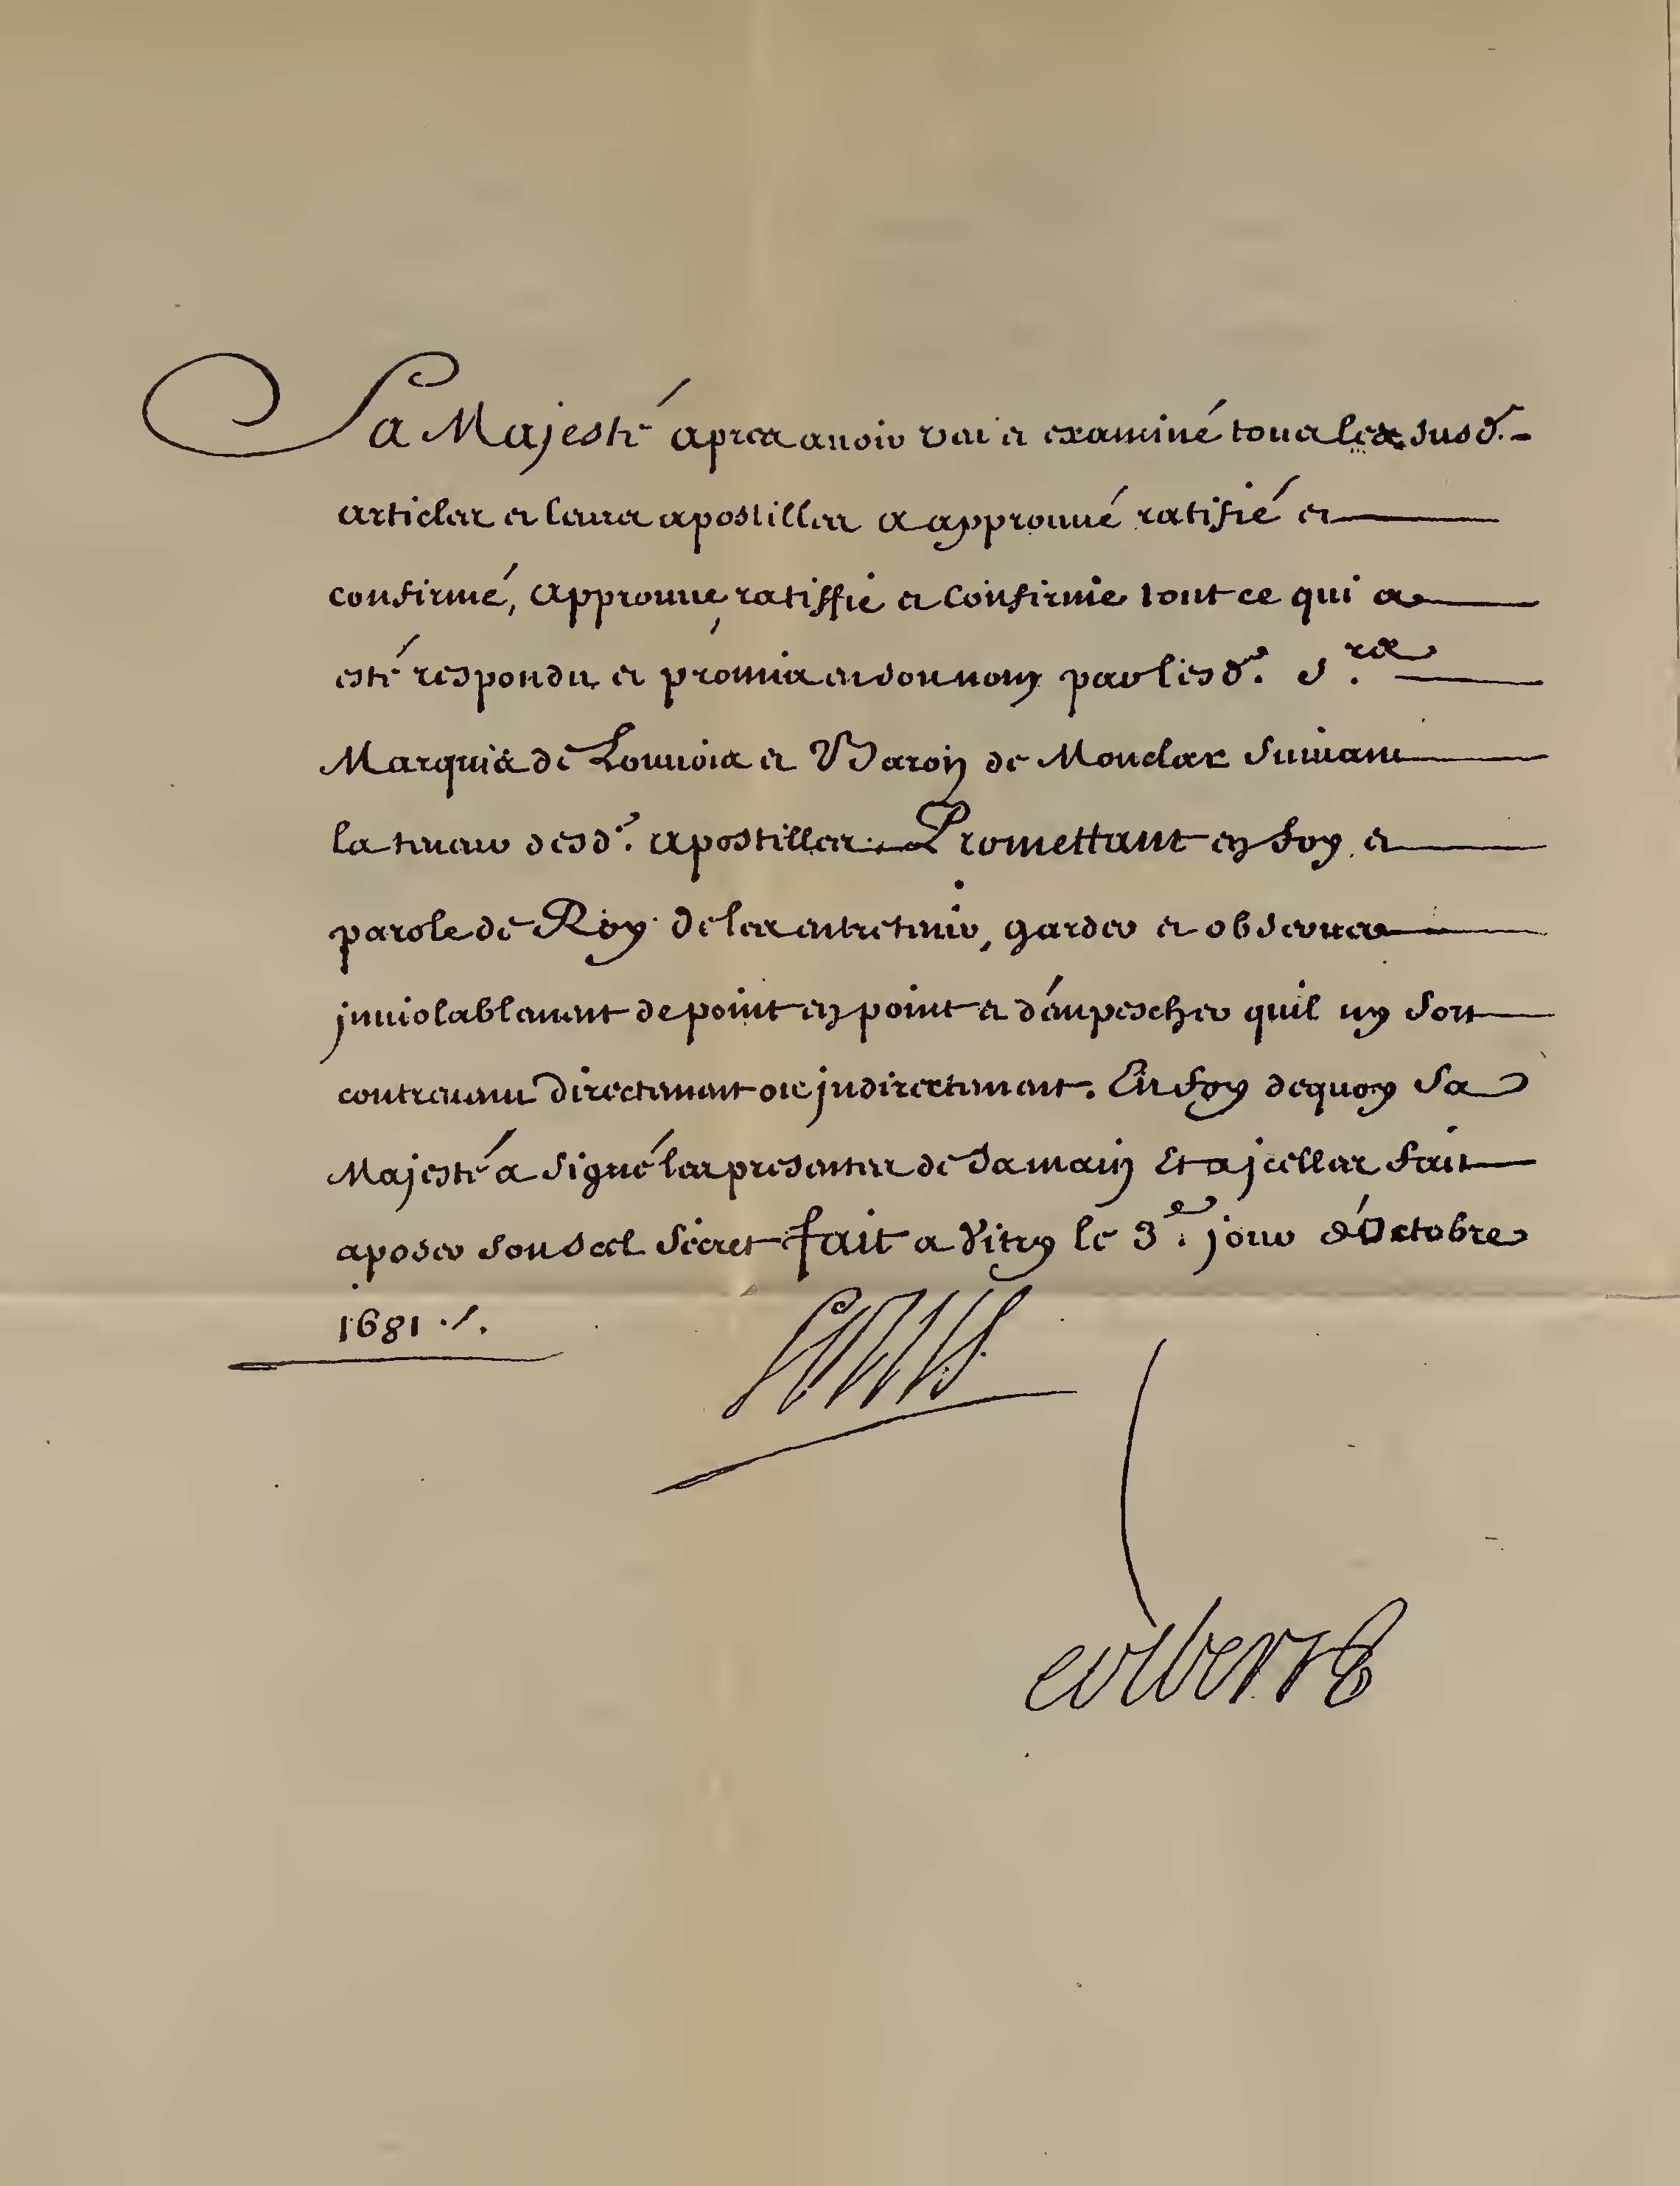 Sa Majesté apres auoir veu et examiné tous les susd.
articles et leurs apostilles a approuué ratifié et
confirmé, approuue, ratiffie et confirme tout ce qui a
esté respondu et promis en son nom par lesd. Srs
Marquis de Louuois et Baron de Monclar suiuant
la teneur desd. apostilles. Promettant en foy et
parole de Roy de les entretenir, garder et obseruer
jnuiolablement de point en point et d'empescher quil ny soit
contreuenu directement ou jndirectement. En foy dequoy Sa
Majesté a signé les presentes de sa main Et a jcelles fait
aposer son scel secret fait a Vitry le 3e. jour d'Octobre
1681 ./.
Louis
Colbert